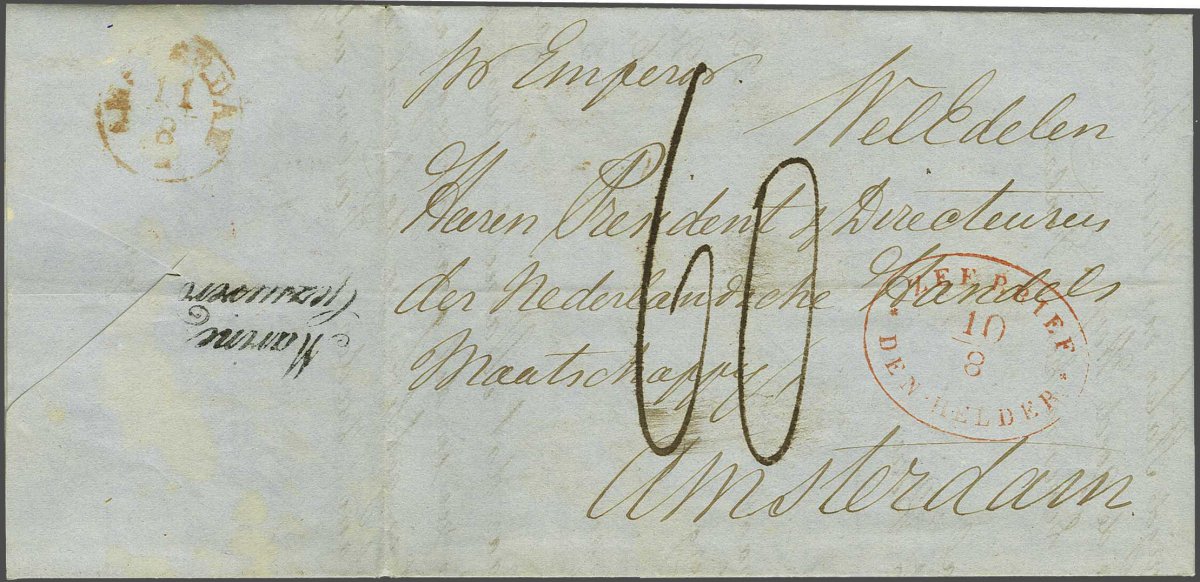 pr Emperor.
WelEdelen
Heeren President & Directeuren
der Nederlandsche Handels
Maatschappy
Amsterdam
60
ZEE BRIEF
10/8
DEN HELDER
AMSTERDAM
11/8
Marine